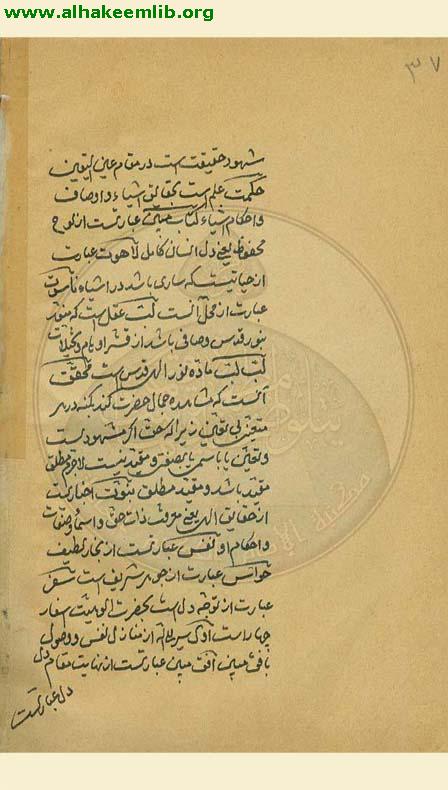 www.alhakeemlib.org
٣٧
شهود حقیقت است در مقام عین الیقین
حکمت علم است بحقایق اشیاء و اوصاف
و احکام اشیاء کتاب مبین عبارتست از لوح
محفوظ یعنی دل انسان کامل لاهوت عبارت
از حیاتیست که ساری باشد در اشیاء ناسوت
عبارت از محل آنست لب عقل است که منور
بنور قدس و صافی باشد از قشر اوهام و تخیلات
لب لب ماده نور الهی قدس است محقق
آنست که مشاهده جمال حضرت کند که در هر
متعینی بی تعین زیرا که حق اگر مشهود است
و تعین یا باسم یا بصفة و مقید نیست لاجرم مطلق
مقید باشد و مقید مطلق نبوت اخبارست
از حقایق الهی یعنی معرفت ذات حق و اسماء و صفات
و احکام او نفس عبارتست از بخار لطیف
حواس عبارت از جوهر شریف است سفر
عبارت از توجه دل است بحضرت الوهیت اسفار
چهار است اول سیر الی الله از منازل نفس و وصول
بافق مبین افق مبین عبارتست از نهایت مقام دل
دل عبارتست